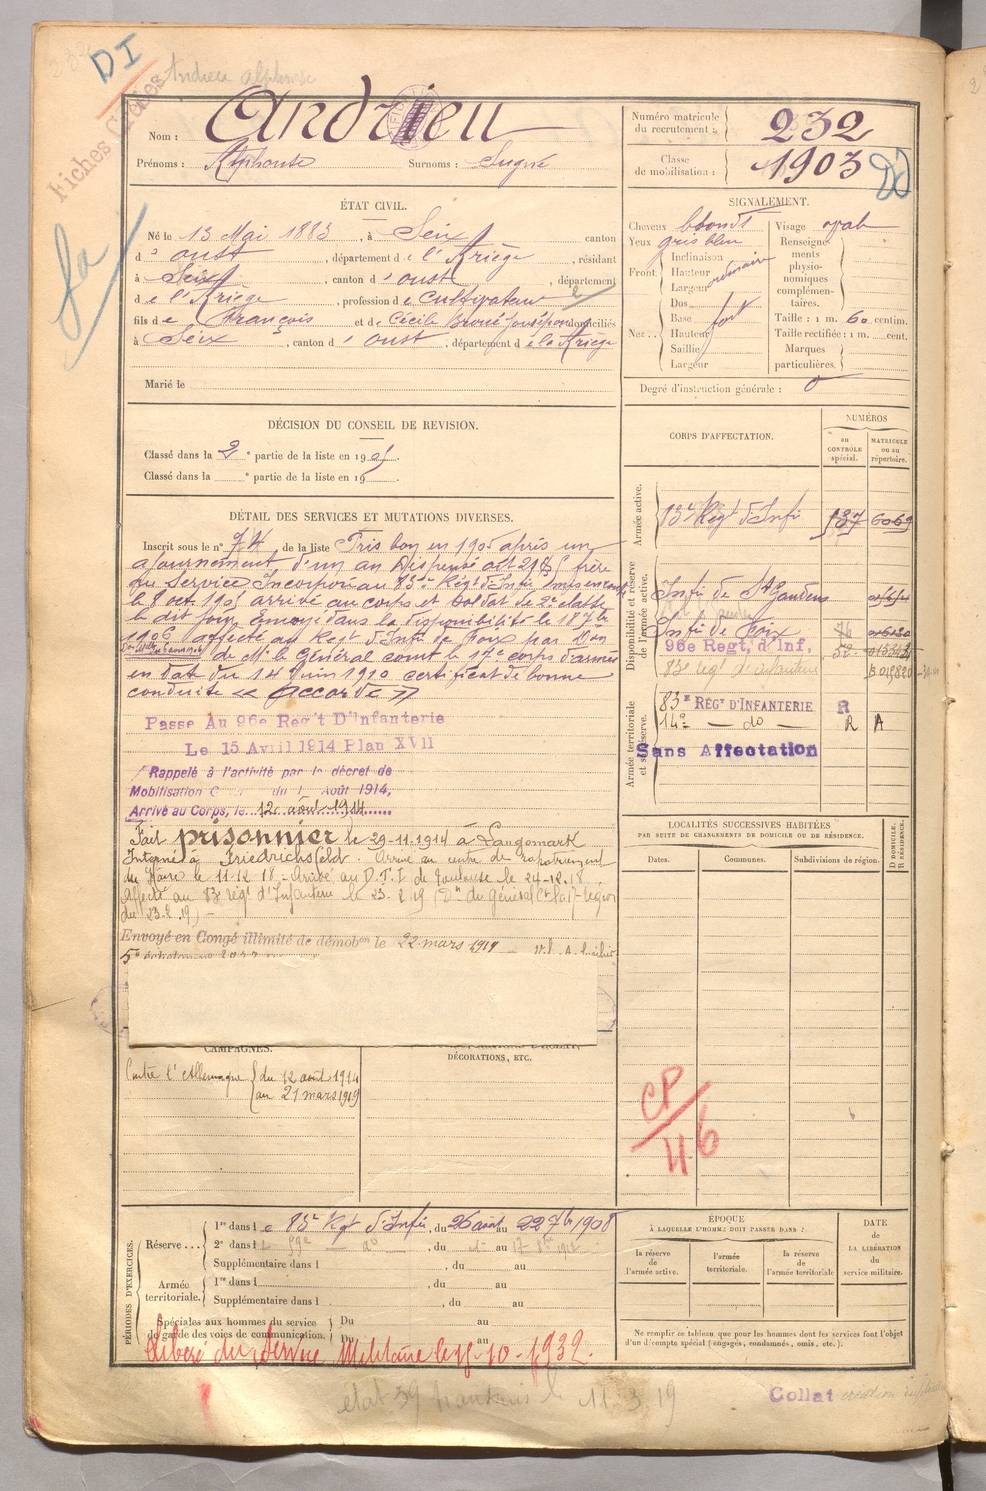 DI
Andrieu Alphonse
Fiches
Nom : Andrieu
Prénoms : Alphonse Surnoms :
Numéro matricule du recrutement : 232
Classe de mobilisation : 1903
ÉTAT CIVIL.
Né le 13 Mai 1883, à Seix, canton
d'Oust, département de l'Ariège, résidant
à Seix, canton d'Oust, département
de l'Ariège, profession de cultivateur
fils de François et de Cécile domiciliés
à Seix, canton d'Oust, département de l'Ariège
Marié le
SIGNALEMENT.
Cheveux blonds
Yeux gris bleu
Front. Inclinaison
Hauteur ordinaire
Largeur
Nez... Dos
Base fort
Hauteur
Saillie
Largeur
Visage ovale
Renseignements physionomiques complémentaires.
Taille : 1 m. 60 centim.
Taille rectifiée : 1 m. cent.
Marques particulières.
Degré d'instruction générale : 0
DÉCISION DU CONSEIL DE REVISION.
Classé dans la 2e partie de la liste en 1905.
Classé dans la e partie de la liste en 19
DÉTAIL DES SERVICES ET MUTATIONS DIVERSES.
Inscrit sous le n° 74 de la liste Très bon en 1905 après un
ajournement d'un an Dispensé art 21 frère
au Service Incorporé au 83e Régt d'Infie
le 8 oct. 1905 arrivé au corps et soldat de 2e classe
le dit jour envoyé dans la disponibilité le 18 7bre
1906 affecté au Régt d'Infie de Foix par Don
de Mr le Général comt le 17e corps d'armée
en date du 14 Juin 1910 certificat de bonne
conduite « Accordé »
Passe Au 96e Reg't D'Infanterie
Le 15 Avril 1914 Plan XVII
Rappelé à l'activité par le décret de
Mobilisation du 1 Août 1914,
Arrivé au Corps, le 12 août 1914
Fait prisonnier le 29-11-1914 à Langemark
Interné à Friedrichsfeld. Arrivé au centre de rapatriement
du Havre le 11-12 18. Arrivé au D.T.I de Toulouse le 24-12.18.
Affecté au 83e régt d'Infanterie le 23-2.19 (Dn du Général Ct la 17e région
du 23-2.19)
Envoyé en Congé illimité de démobon le 22 mars 1919
CORPS D'AFFECTATION.
NUMÉROS
au CONTRÔLE spécial.
MATRICULE ou au répertoire.
Armée active.
Disponibilité et réserve de l'armée active.
Armée territoriale et sa réserve.
83e Régt d'Infie 137 6069
Infie de St Gaudens
Infie de Foix 76
96e Regt, d'Inf, 52
83e régt d'infanterie
83e RÉGt D'INFANTERIE R
14e — do — R A
Sans Affectation
LOCALITÉS SUCCESSIVES HABITÉES
PAR SUITE DE CHANGEMENTS DE DOMICILE OU DE RÉSIDENCE.
Dates. Communes. Subdivisions de région.
D DOMICILE. R RÉSIDENCE.
CAMPAGNES.
DÉCORATIONS, ETC.
Contre l'Allemagne du 12 août 1914
au 21 mars 1919
CP/46
PÉRIODES D'EXERCICES.
Réserve... 1re dans le 83e Régt d'Infie, du 26 août au 22 7bre 1908
2e dans l , du au 17 1912
Supplémentaire dans l , du au
Armée territoriale. 1re dans l , du au
Supplémentaire dans l , du au
Spéciales aux hommes du service de garde des voies de communication. Du au
Du au
Libéré du Service Militaire le 15-10-1932.
ÉPOQUE
À LAQUELLE L'HOMME DOIT PASSER DANS :
la réserve de l'armée active.
l'armée territoriale.
la réserve de l'armée territoriale
DATE DE LA LIBÉRATION du service militaire.
Ne remplir ce tableau que pour les hommes dont les services font l'objet
d'un décompte spécial (engagés, condamnés, omis, etc.).
11.3.19
Collat